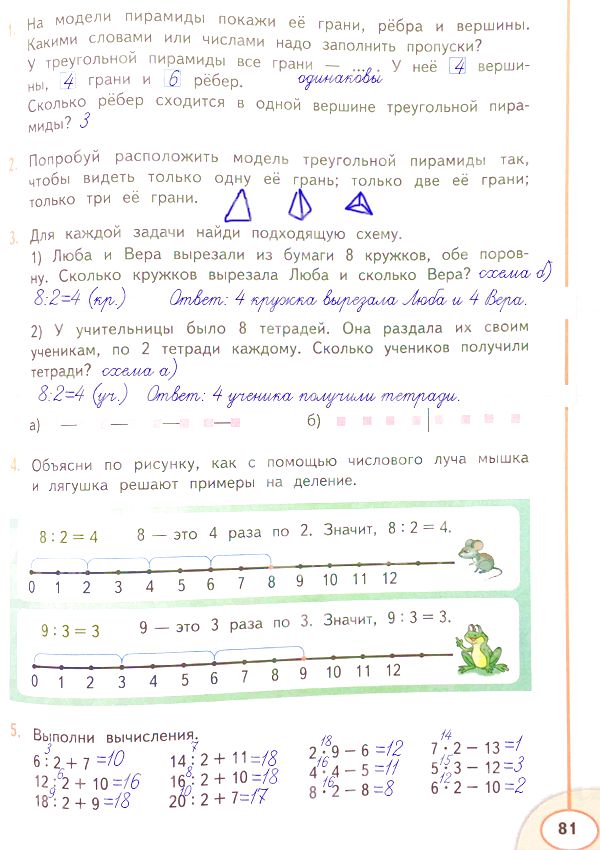 1. На модели пирамиды покажи её грани, рёбра и вершины.
Какими словами или числами надо заполнить пропуски?
У треугольной пирамиды все грани — ... . У неё 4 верши-
ны, 4 грани и 6 рёбер. одинаковы
Сколько рёбер сходится в одной вершине треугольной пира-
миды? 3
2. Попробуй расположить модель треугольной пирамиды так,
чтобы видеть только одну её грань; только две её грани;
только три её грани.
3. Для каждой задачи найди подходящую схему.
1) Люба и Вера вырезали из бумаги 8 кружков, обе поров-
ну. Сколько кружков вырезала Люба и сколько Вера? схема б)
8:2=4 (кр.) Ответ: 4 кружка вырезала Люба и 4 Вера.
2) У учительницы было 8 тетрадей. Она раздала их своим
ученикам, по 2 тетради каждому. Сколько учеников получили
тетради? схема а)
8:2=4 (уч.) Ответ: 4 ученика получили тетради.
а) б)
4. Объясни по рисунку, как с помощью числового луча мышка
и лягушка решают примеры на деление.
8 : 2 = 4 8 — это 4 раза по 2. Значит, 8 : 2 = 4.
0 1 2 3 4 5 6 7 8 9 10 11 12
9 : 3 = 3 9 — это 3 раза по 3. Значит, 9 : 3 = 3.
0 1 2 3 4 5 6 7 8 9 10 11 12
5. Выполни вычисления.
3 7 18 14
6 : 2 + 7 =10 14 : 2 + 11 =18 2 · 9 − 6 =12 7 · 2 − 13 =1
6 8 16 15
12 : 2 + 10 =16 16 : 2 + 10 =18 4 · 4 − 5 =11 5 · 3 − 12 =3
9 10 16 12
18 : 2 + 9 =18 20 : 2 + 7 =17 8 · 2 − 8 =8 6 · 2 − 10 =2
81